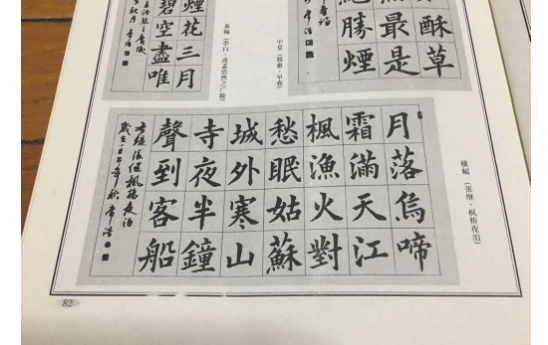 酥草
無最是
絕勝煙
中堂（韩愈·早春）
煙花三月
碧空盡唯
条幅（李白·送孟浩然之广陵）
横幅（张继·枫桥夜泊）
月落烏啼
霜滿天江
楓漁火對
愁眠姑蘇
城外寒山
寺夜半鐘
聲到客船
楓橋夜泊
82